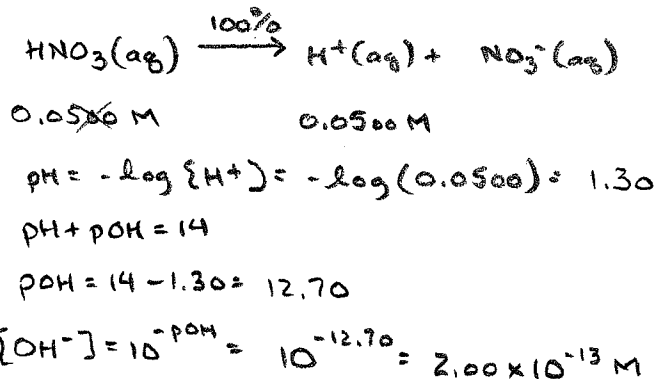 HNO₃(aq) —100%→ H⁺(aq) + NO₃⁻(aq)
0.0500 M 0.0500 M
pH = -log [H⁺] = -log(0.0500) = 1.30
pH + pOH = 14
pOH = 14 - 1.30 = 12.70
[OH⁻] = 10^-pOH = 10^-12.70 = 2.00 x 10^-13 M